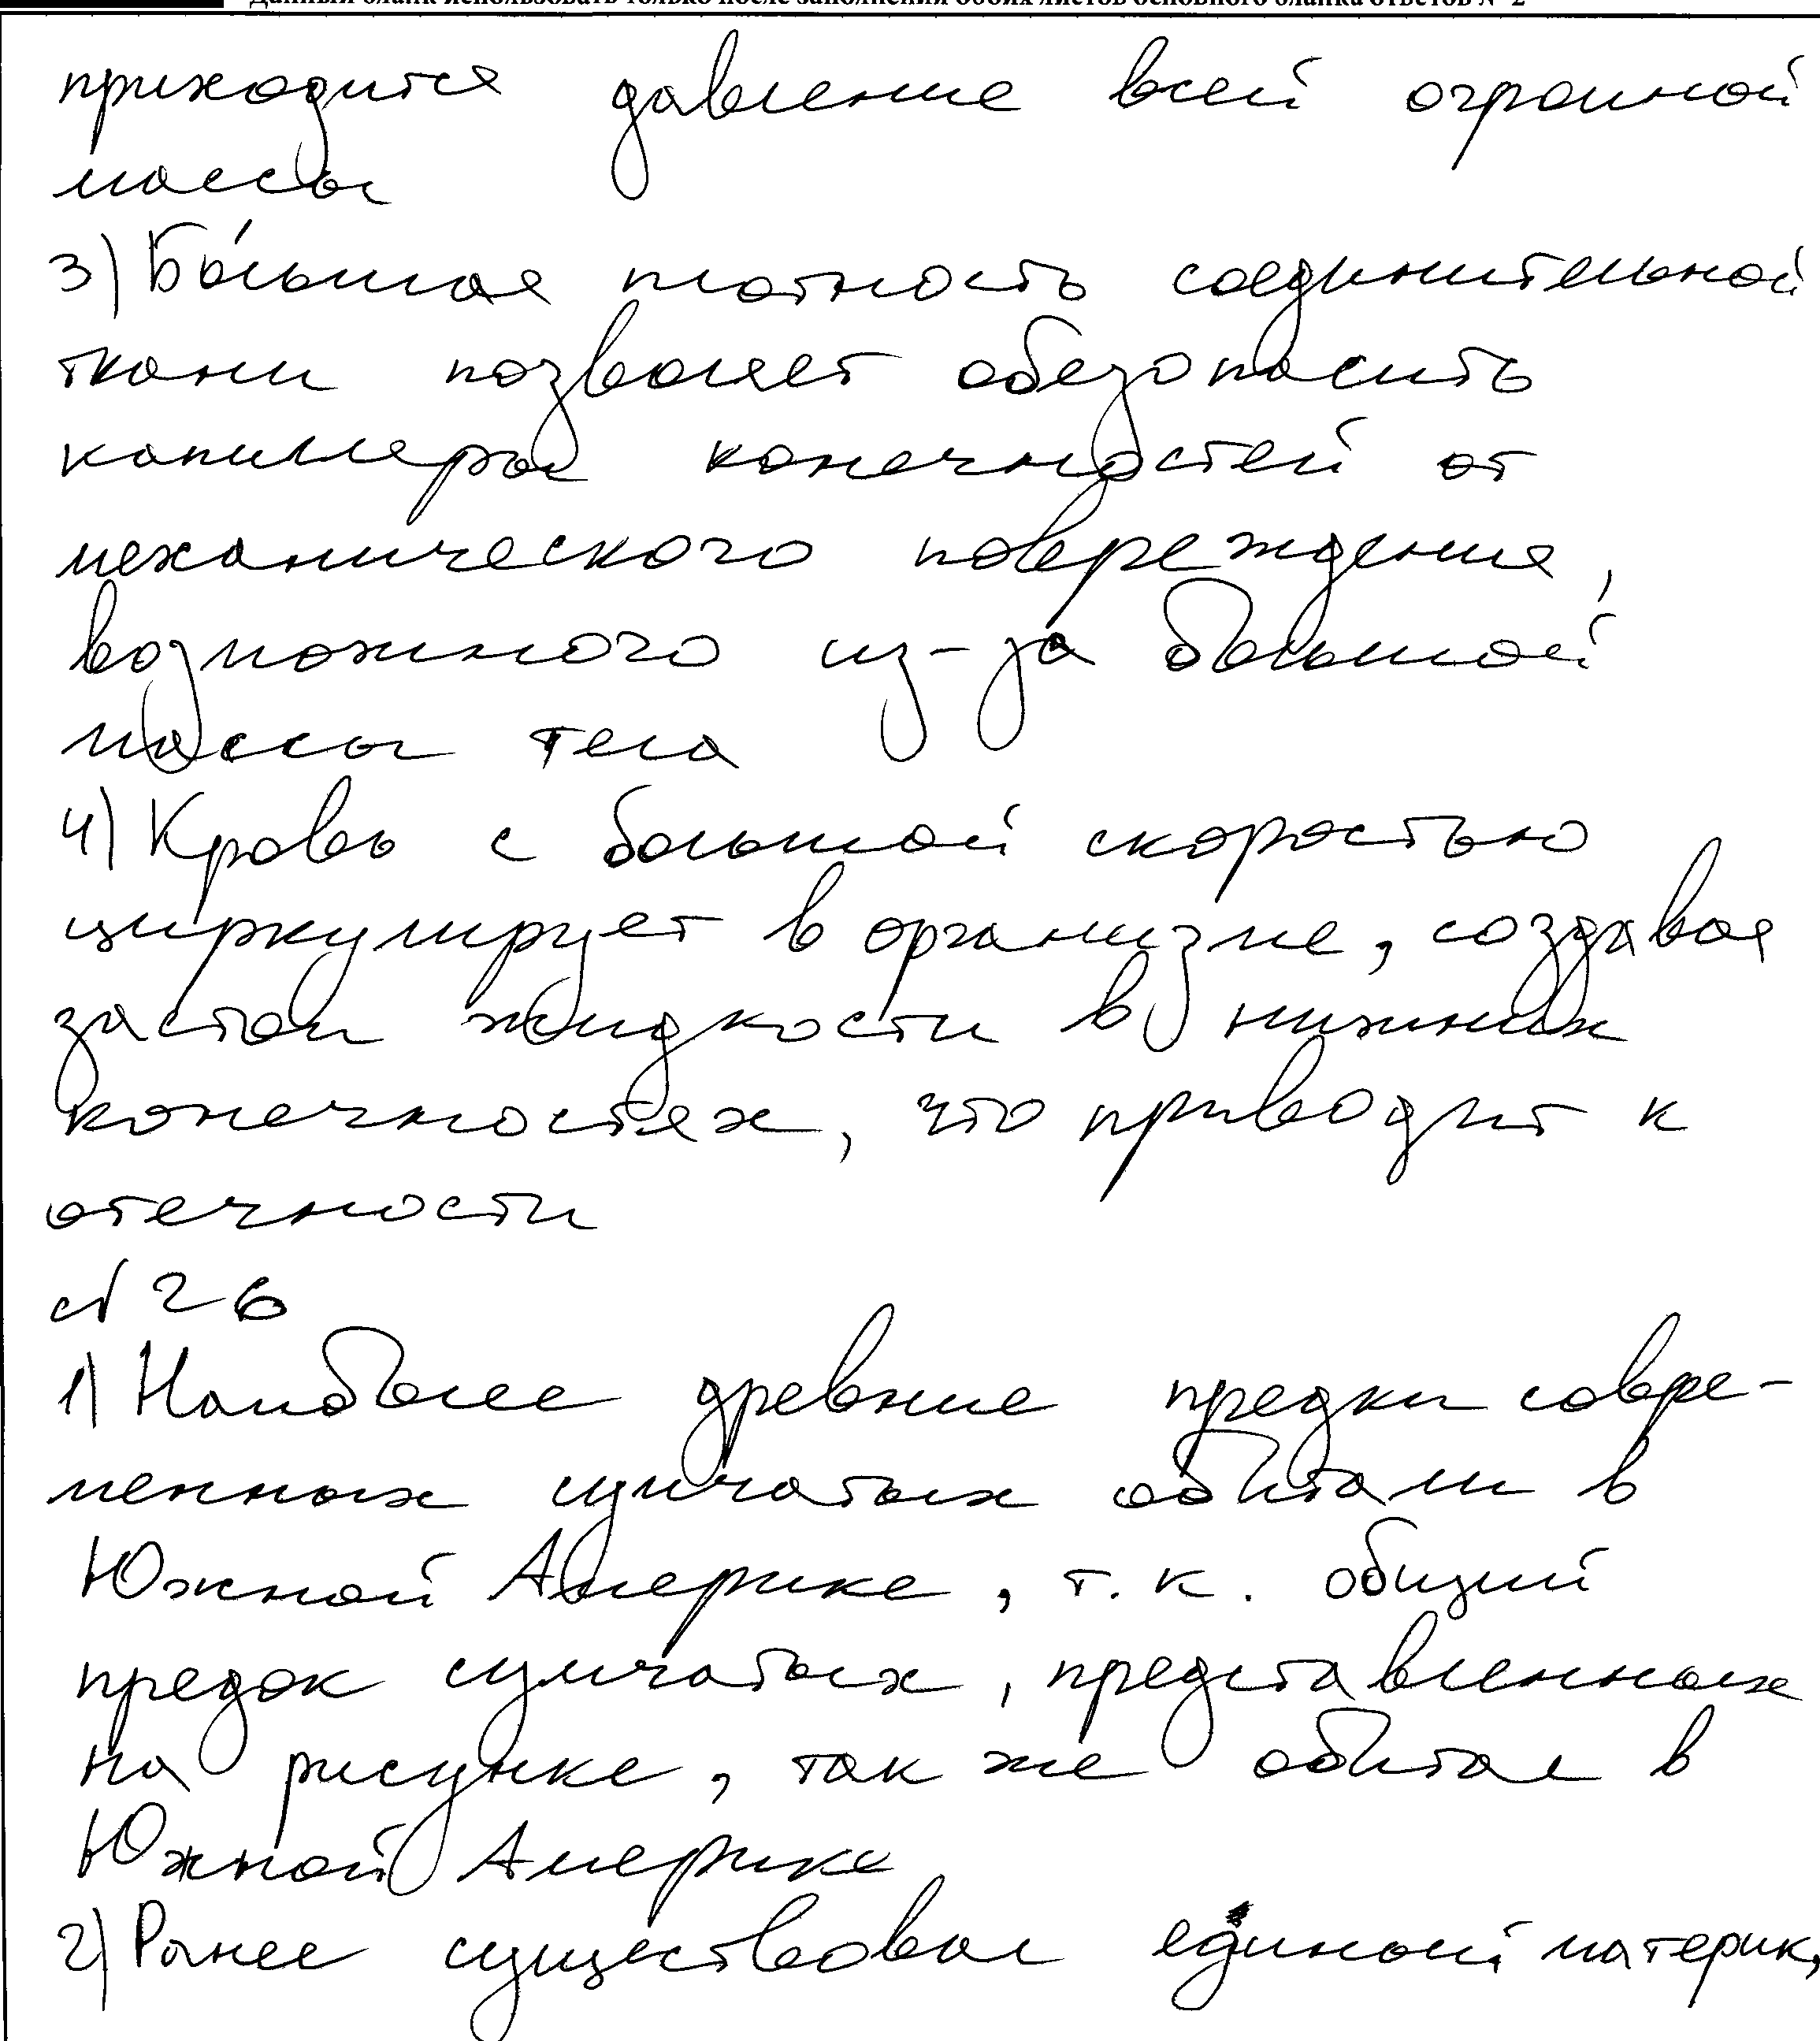 Данный бланк использовать только после заполнения обоих листов основного бланка ответов № 2
приходится давление всей огромной
массы
3) Бо́льшая плотность соединительной
ткани позволяет обезопасить
капилляры конечностей от
механического повреждения,
возможного из-за большой
массы тела
4) Кровь с большой скоростью
циркулирует в организме, создавая
застои жидкости в нижних
конечностях, что приводит к
отечности
№ 26
1) Наиболее древние предки совре-
менных сумчатых обитали в
Южной Америке, т.к. общий
предок сумчатых, представленных
на рисунке, так же обитал в
Южной Америке
2) Ранее существовал единый материк,